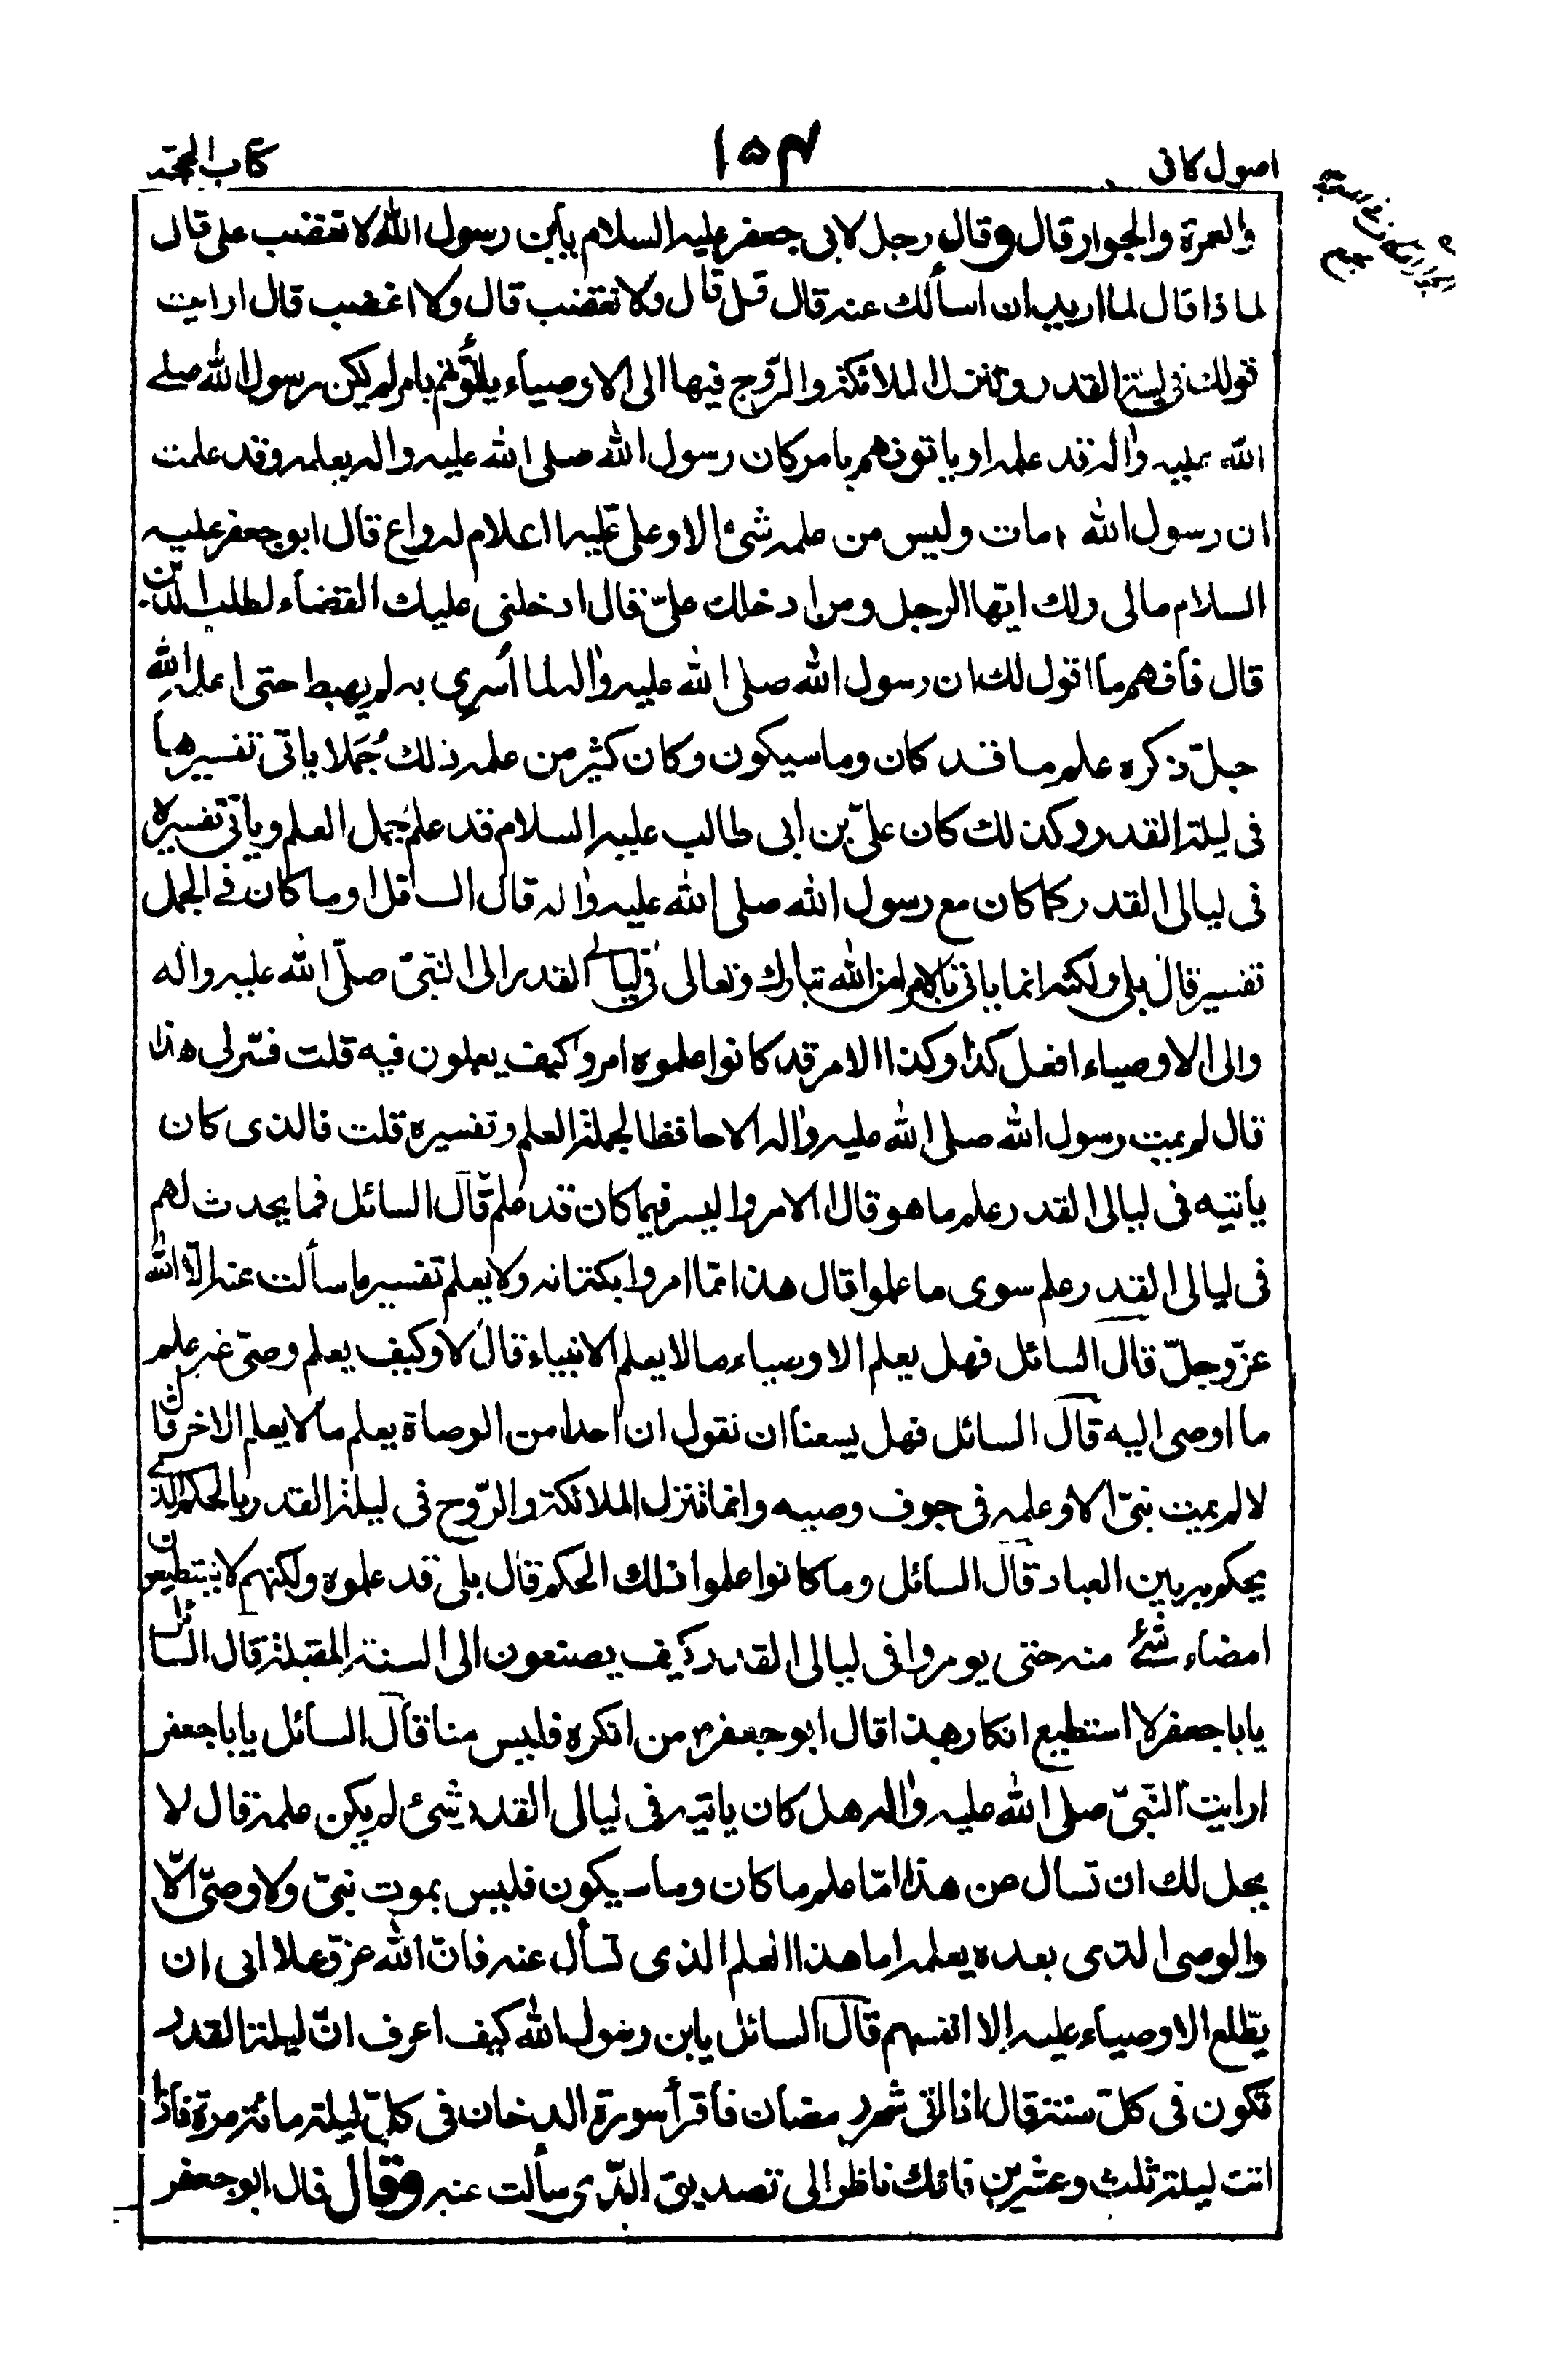 اصول كافى
١٥٤
كتاب الحجة
والعمرة والجوار قال وقال رجل لابى جعفر عليه السلام يابن رسول الله لا تغضب على قال
لماذا قال لما اريد ان اسألك عنه قال قل قال ولا تغضب قال ولا اغضب قال ارايت
قولك فى ليلة القدر وتنزل الملائكة والروح فيها الى الاوصياء يأتونهم بامر لم يكن رسول الله صلى
الله عليه واله قد علمه او ياتونهم بامر كان رسول الله صلى الله عليه واله يعلمه وقد علمت
ان رسول الله مات وليس من علمه شئ الا وعلى عليه السلام له واع قال ابو جعفر عليه
السلام مالى ولك ايها الرجل ومن ادخلك علىّ قال ادخلنى عليك القضاء لطلب الدين
قال فافهم ما اقول لك ان رسول الله صلى الله عليه واله لما أسرى به لم يهبط حتى اعلمه الله
جلّ ذكره علم ما قد كان وما سيكون وكان كثير من علمه ذلك جُمَلا ياتى تفسيرها
فى ليلة القدر وكذلك كان علىّ بن ابى طالب عليه السلام قد علم جُمل العلم وياتى تفسيره
فى ليالى القدر كما كان مع رسول الله صلى الله عليه واله قال السائل اوما كان فى الجمل
تفسير قال بلى ولكنه انما ياتى بالامر من الله تبارك وتعالى فى ليالى القدر الى النبىّ صلّى الله عليه واله
والى الاوصياء افعل كذا وكذا الامر قد كانوا علموه امروا كيف يعملون فيه قلت فسّر لى هذا
قال لم يمت رسول الله صلى الله عليه واله الا حافظا لجملة العلم وتفسيره قلت فالذى كان
ياتيه فى ليالى القدر علم ما هو قال الامر واليسر فيما كان قد علم قال السائل فما يحدث لهم
فى ليالى القدر علم سوى ما علموا قال هذا ممّا امروا بكتمانه ولا يعلم تفسير ما سألت عنه الّا الله
عزّوجلّ قال السائل فهل يعلم الاوصياء ما لا يعلم الانبياء قال لا وكيف يعلم وصىّ غير علم
ما اوصى اليه قال السائل فهل يسعنا ان نقول ان احدا من الوصاة يعلم ما لا يعلم الاخر قال
لا لم يمت نبىّ الا وعلمه فى جوف وصيه وانما تنزل الملائكة والرّوح فى ليلة القدر بالحكم الذى
يحكم به بين العباد قال السائل وما كانوا علموا ذلك الحكم قال بلى قد علموه ولكنهم لا يستطيعون
امضاء شئ منه حتى يومروا فى ليالى القدر كيف يصنعون الى السنة المقبلة قال السائل
يابا جعفر لا استطيع انكار هذا قال ابو جعفر من انكره فليس منا قال السائل يابا جعفر
ارايت النّبىّ صلى الله عليه واله هل كان ياتيه فى ليالى القدر شئ لم يكن علمه قال لا
يحل لك ان تسال عن هذا امّا علم ما كان وما سيكون فليس يموت نبىّ ولا وصىّ الّا
والوصى الذى بعده يعلمه اما هذا العلم الذى تسأل عنه فانّ الله عزّوعلا ابى ان
يطّلع الاوصياء عليه الا انفسهم قال السائل يابن رسول الله كيف اعرف انّ ليلة القدر
تكون فى كلّ سنة قال اذا اتى شهر رمضان فاقرأ سورة الدخان فى كلّ ليلة مائة مرة فاذا
اتت ليلة ثلث وعشرين فانك ناظر الى تصديق الذى سألت عنه وقال قال ابو جعفر